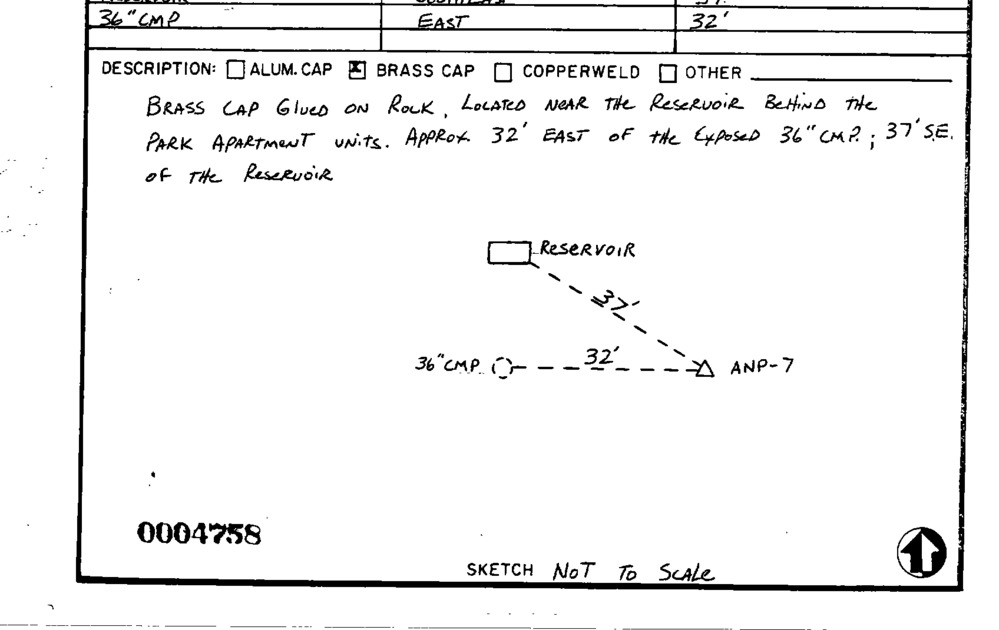 36" CMP EAST 32'
DESCRIPTION: ALUM. CAP BRASS CAP COPPERWELD OTHER
BRASS CAP GLUED ON ROCK, LOCATED NEAR THE RESERVOIR BEHIND THE
PARK APARTMENT UNITS. APPROX. 32' EAST OF THE EXPOSED 36" CMP.; 37' S.E.
OF THE RESERVOIR
RESERVOIR
37'
36" CMP. 32' ANP-7
0004758
SKETCH NOT TO SCALE